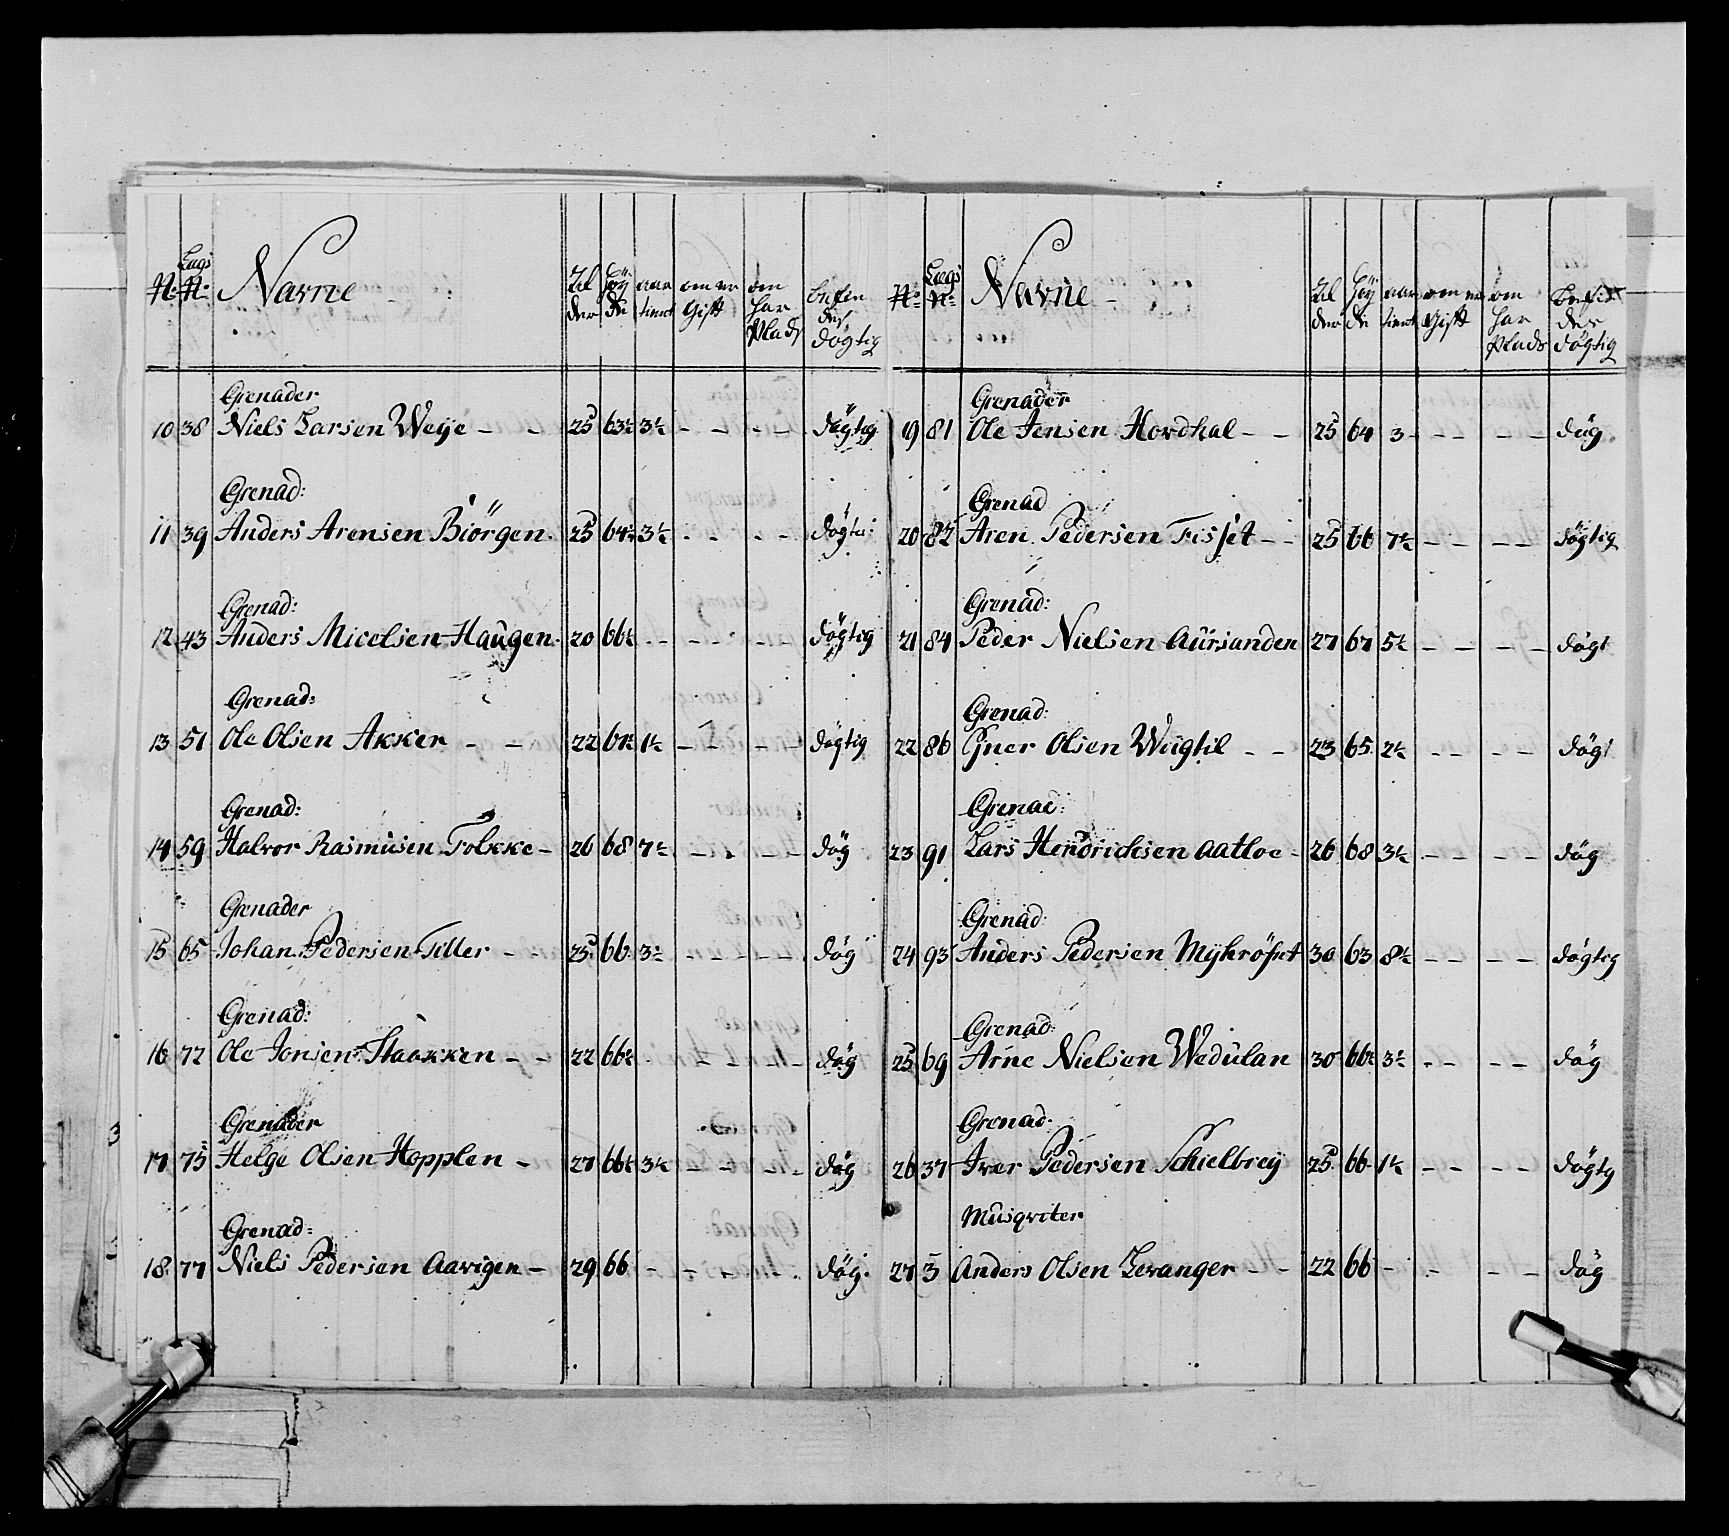 No Lægs No Navne Al der Høy de aar tient om er Gift om har Plads befin des døgtig
Grenader
10 38 Niels Larsen Weye - - 25 63½ 3½ - - - - døgtig
Grenad:
11 39 Anders Arensen Biörgen. 25 64½ 3½ - - - - døgti:
Grenad:
12 43 Anders Micelsen Haugen. 20 66½ - - - - døgtig
Grenad:
13 51 Ole Olsen Akker - - 22 67½ 1½ - - - - døgtig
Grenad:
14 59 Halvor Rasmusen Folkke - 26 68 7½ - - - - døg
Grenader
15 65 Johan Pedersen Tiller - - 25 66 3½ - - - - døg
Grenad:
16 72 Ole Jonsen Haakken - - 22 66½ - - - - døg
Grenader
17 75 Helge Olsen Hopplen - 27 66½ 3½ - - - - døg
Grenad:
18 77 Niels Pedersen Aavigen - 29 66 - - - - - døg.
No Lægs No Navne Al der Høy de aar tient om er Gift om har Plads befin des døgtig
Grenader
19 81 Ole Jensen Hordhal - - 25 64 3 - - - - døg.
Grenad
20 82 Aren Pedersen Fisset - - 25 66 7½ - - - - døgtig
Grenad:
21 84 Peder Nielsen Aursanden 27 67 5½ - - - - døgt
Grenad:
22 86 Olsen Wiigtil - - 23 65 2½ - - - - døgt
Grenad:
23 91 Lars Hendrichsen Aatloe - 26 68 3½ - - - - døg
Grenad:
24 93 Anders Pedersen 30 63 8½ - - - - døgtig
Grenad:
25 69 Arne Nielsen Wedulan 30 66½ 3½ - - - - døg
Grenad:
26 37 Iver Pedersen Schielbrey 25 66 1½ - - - - døgtg
Musqviter
27 5 Anders Olsen Levanger - - 22 66 - - - - døg